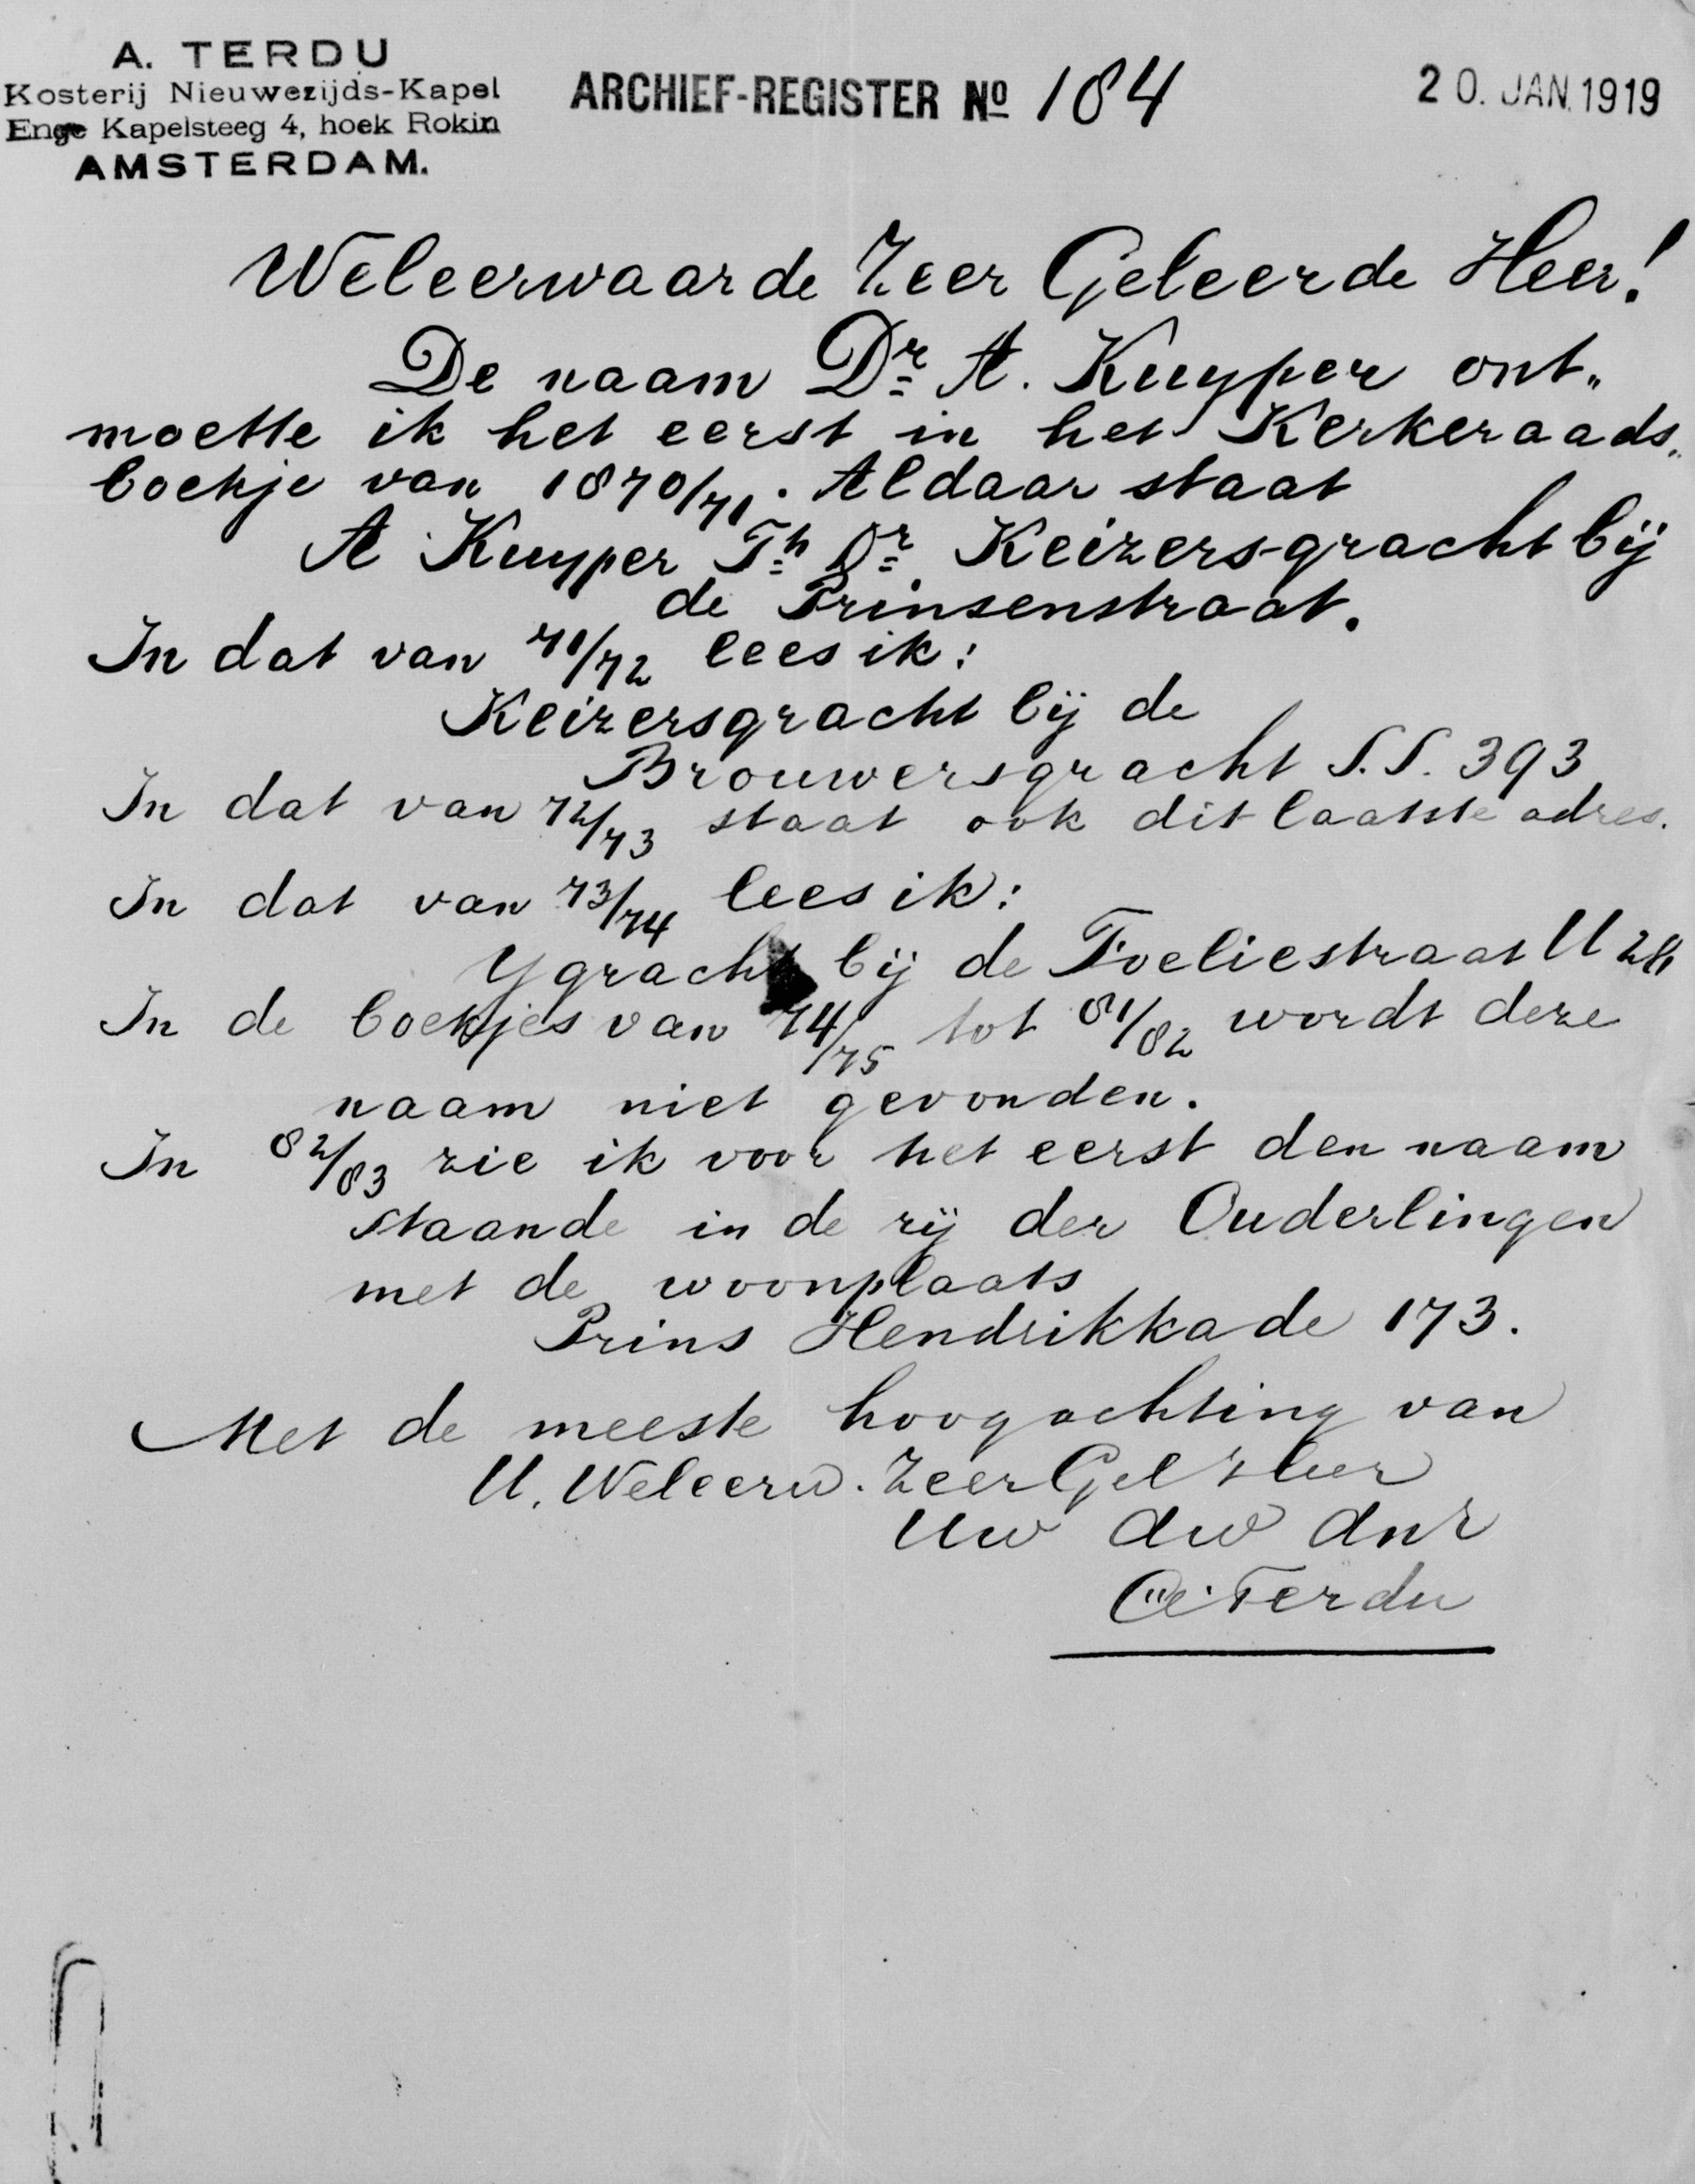 A. TERDU
Kosterij Nieuwezijds-Kapel
Enge Kapelsteeg 4, hoek Rokin
AMSTERDAM.
ARCHIEF-REGISTER No 184
20. JAN. 1919
Weleerwaarde Zeer Geleerde Heer!
De naam Dr A. Kuyper ont„
moette ik het eerst in het Kerkeraads„
boekje van 1870/71. Aldaar staat
A Kuyper Th Dr Keizersgracht bij
de Prinsenstraat.
In dat van 71/72 lees ik:
Keizersgracht bij de
Brouwersgracht S.S. 393
In dat van 72/73 staat ook dit laatste adres.
In dat van 73/74 lees ik:
Ygracht bij de Foeliestraat U
In de boekjes van 74/75 tot 81/82 wordt deze
naam niet gevonden.
In 82/83 zie ik voor het eerst den naam
staande in de rij der Ouderlingen
met de woonplaats
Prins Hendrikkade 173.
Met de meeste hoogachting van
U. Weleerw. Zeer Gel Heer
Uw dw dnr
A. Terdu